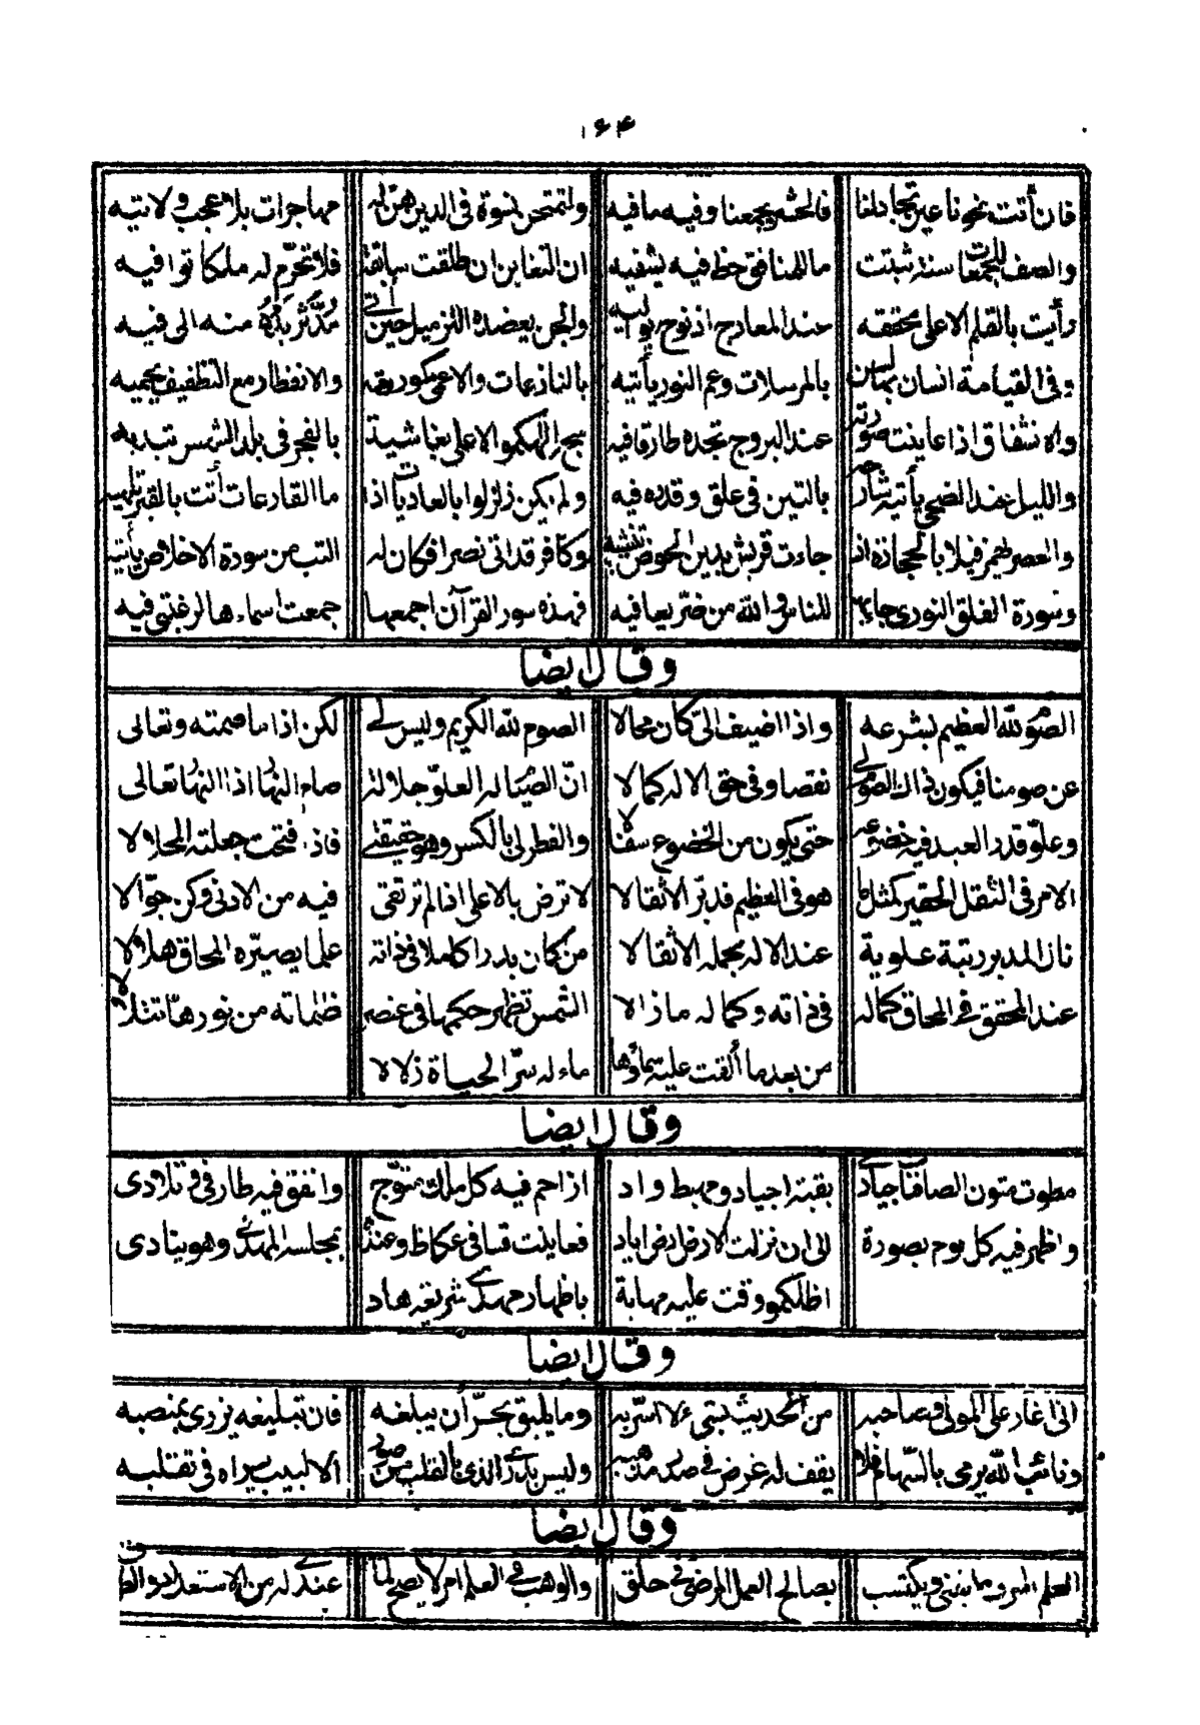 ١٦٤
فان أتت نحونا عين تجادلنا فالحشر يجمعنا وفيه مافيه ولتمتحن نسوة فى الدين هن له مهاجرات بلا عجب ولا تيه
والصف للجمعات سنته ثبتت ما للمنافق حظ فيه يشفيه ان التغابن ان طلقت سابقة فلا تحرّم له ملكا توافيه
رأيت بالقلم الاعلى محققه عند المعارج اذ نوح يوليه والجن يعضده المزميل حين أتى مُدّثر منه الى فيه
وفى القيامة انسان بالمرسلات وعم النور يأتيه بالنازعات والاعمى والانفطار مع التطفيف يحميه
والانشقاق اذا عاينت صورته عند البروج تجده طارقافيه سبح الهكمو الاعلى بغاشية بالفجر فى بلد الشمس تبديه
والليل عند الضحى يأتيه بالتين فى علق وقدره فيه ولم يكن زلزلوا بالعاديات اذا ما القارعات أتت بالقبر تلهيه
والعصر فيلا بالحجازة جاءت قريش بدين الحوض وكافر قد اتى نصرا فكان له التب من سورة الاخلاص يأتيه
وسورة الفلق النورى جاء للناس الله من ضرّ بعافيه فهذه سور القرآن اجمعها جمعت اسماءها لرغبتى فيه
وقال ايضا
الصوم لله العظيم بشرعه واذا اضيف الىّ كان محالا الصوم لله الكريم وليس لى لكن اذا ما صمته وتعالى
عن صومنا فيكون ذاك الصوم لى نقصا وفى حق الاله كمالا انّ الصيام له العلوّ جلالة صام النهار اذا النهار تعالى
وعلوّ قدر العبد فيه خضوعه حتى يكون من الخضوع سفالا والفطر لى بالكسر وهو حقيقتى فاذا فتحت جعلته المحلالا
الامر فى الثقل الحقير كمثل ما هو فى العظيم فدبّر الأثقالا لا ترض بالاعلى اذا لم ترتقى فيه من الادنى وكن جوّالا
نال المدبر رتبة علوية عند الاله بحمله الاثقالا من كان بدرا كاملا فى ذاته علما يصيّره المحاق هلالا
عند المحقق فى المحاق كماله فى ذاته وكماله ما زالا الشمس تظهر حكمها فى عنصر ظلماته من نورها تتلالا
من بعد ما ألقت عليه سماؤها ماء له سرّ الحياة زلالا
وقال ايضا
مطوت متون الصافنات جياد بقبة اجياد ومهبط واد ازاحم فيه كل ملك متوّج وانفق فيه طارفى وتلادى
واظهر فيه كل يوم بصورة الى ان نزلت الارض ارض اياد فعاينت قسا فى عكاظ وعنده بمجلسه المهدىّ وهو ينادى
اظلكمو وقت عليه مهابة باظهار مهدىّ شريعة هاد
وقال ايضا
انى اغار على المولى وصاحبه من الحديث بشئ لا اسرّ به وما يليق بحرّ أن يبلغه فان تبليغه يزرى بمنصبه
ونائب الله يرمى بالسهام فلا يقف له غرض فى صدر مذهبه وليس يدرى الذى بالقلب من صور الا لبيب يراه فى تقلبه
وقال ايضا
العلم ما بيننى ويكتسب بصالح العمل المرضى فى حلق والوهب فى العلم امر لا يصح لما عندى له من الاستعداد